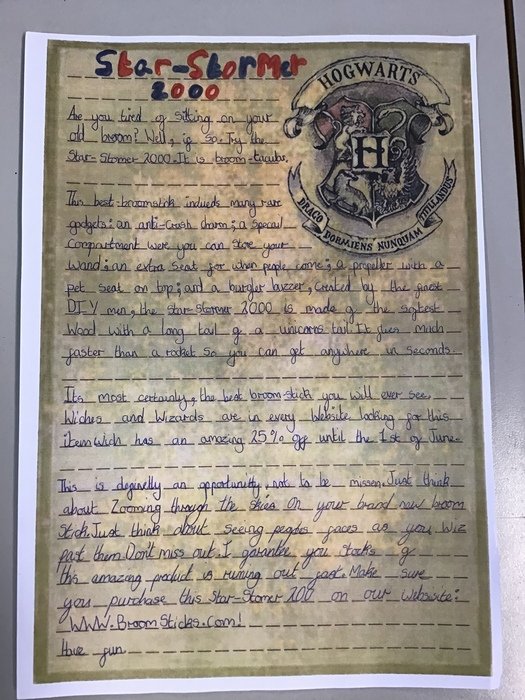 Star-Stormer
2000
HOGWARTS
Are you tired of sitting on your
old broom? Well, if so. Try the
Star-Stomer 2000. It is broom-tacular.
H
DRACO DORMIENS NUNQUAM TITILLANDUS
This best-broomstick indueds many rare
gadgets: an anti-crash charm; a special
compartment were you can store your
wand; an extra seat for when people come; a propeller with a
pet seat on top; and a burgler buzzer; Created by the finest
DIY men, the Star-Stormer 2000 is made of the softest
wood with a long tail of a unicorns tail. It flies much
faster than a rocket so you can get anywhere in seconds
Its most certainly, the best broom-stick you will ever see.
Wiches and Wizards are in every Website looking for this
item wich has an amazing 25% off until the 1st of June.
This is definelly an opportunity, not to be missen. Just think
about Zooming through the skies on your brand new broom
Stick. Just think about seeing peoples faces as you Wiz
past them. Dont miss out. I garantee you stocks of
this amazing product is runing out fast. Make sure
you purchase this Star-Stomer 200 on our website:
WWW.BroomSticks.com!
Have fun